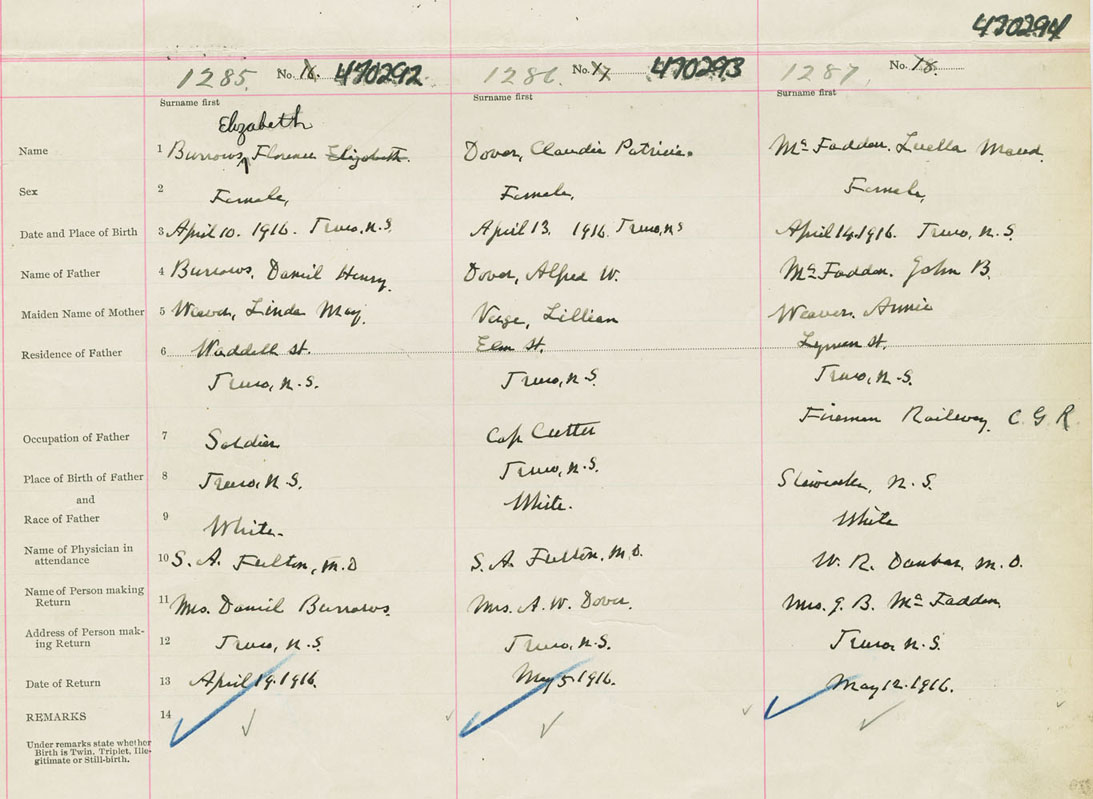 470294
1285 No. 16. 470292 1286 No. 17 470293 1287 No. 18.
Surname first Surname first Surname first
Elizabeth
Name 1 Burrows, Florence Elizabeth. Dover, Claudia Patricia. McFadden. Luella Maud.
Sex 2 Female, Female, Female,
Date and Place of Birth 3 April 10. 1916. Truro, N.S. April 13. 1916. Truro, N S April 14. 1916. Truro, N.S.
Name of Father 4 Burrows, Daniel Henry. Dover, Alfred W. McFadden. John B.
Maiden Name of Mother 5 Weaver, Linda May. Verge, Lillian Weaver. Annie
Residence of Father 6 Waddell St. Elm St. Lyman St.
Truro, N.S. Truro, N.S. Truro, N.S.
Fireman Railway C G R
Occupation of Father 7 Soldier Cap Cutter
Place of Birth of Father 8 Truro, N.S. Truro, N.S. N.S.
and
Race of Father 9 White. White. White
Name of Physician in
attendance 10 S. A. Fulton, M.D S. A. Fulton, M.D. W. R. Dunbar, M.D.
Name of Person making
Return 11 Mrs. Daniel Burrows Mrs. A. W. Dover. Mrs. J. B. McFadden
Address of Person mak-
ing Return 12 Truro, N.S. Truro, N.S. Truro N.S.
Date of Return 13 April 19. 1916. May 5. 1916. May 12. 1916.
REMARKS 14
Under remarks state whether
Birth is Twin. Triplet, Ille-
gitimate or Still-birth.